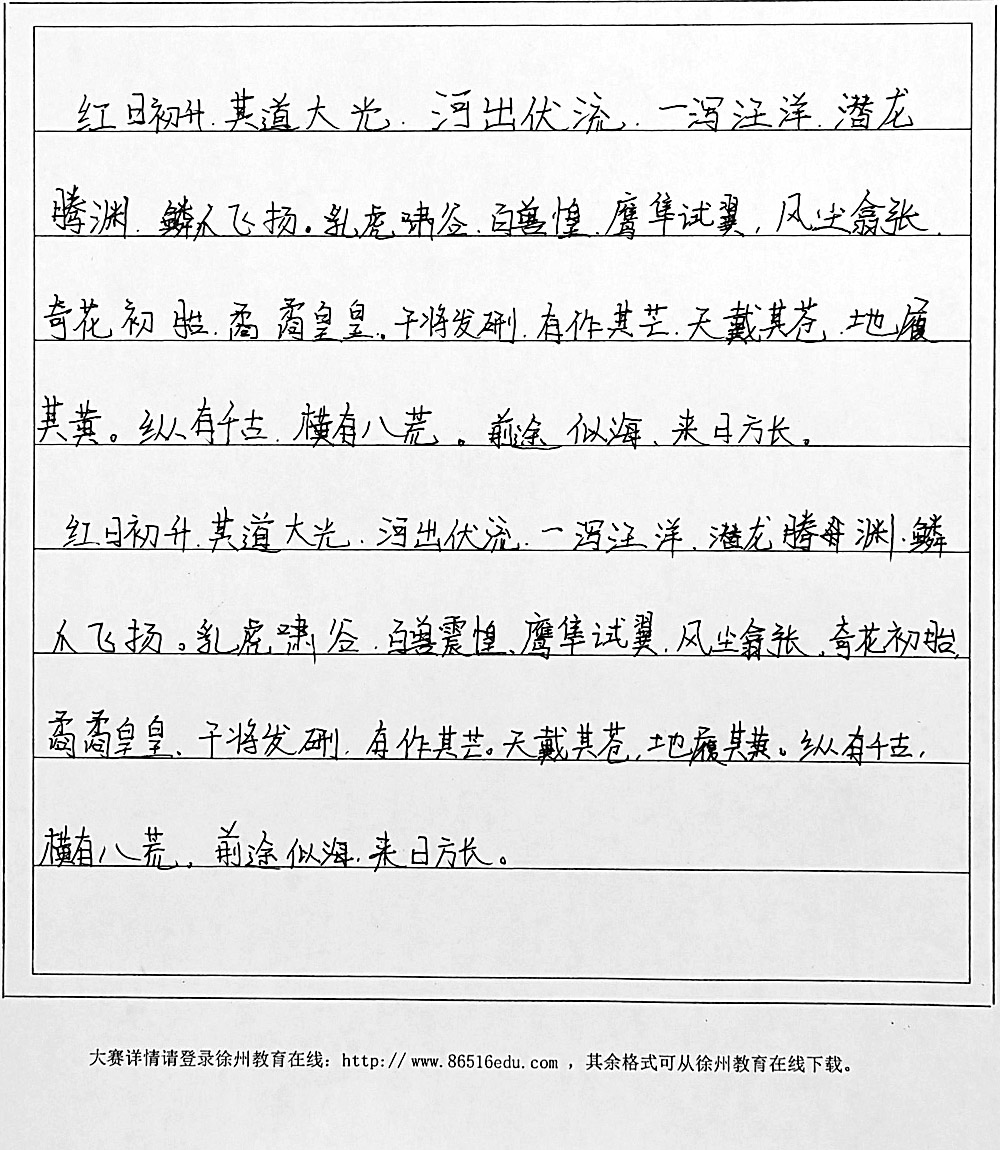 红日初升.其道大光.河出伏流.一泻汪洋.潜龙
腾渊.鳞爪飞扬。乳虎啸谷.百兽惶.鹰隼试翼,风尘翕张.
奇花初胎.矞矞皇皇。干将发硎.有作其芒.天戴其苍,地履
其黄。纵有千古.横有八荒。前途似海、来日方长。
红日初升.其道大光.河出伏流.一泻汪洋.潜龙腾渊.鳞
爪飞扬。乳虎啸谷.百兽震惶、鹰隼试翼.风尘翕张.奇花初胎,
矞矞皇皇、干将发硎.有作其芒。天戴其苍,地履其黄。纵有千古,
横有八荒,前途似海.来日方长。
大赛详情请登录徐州教育在线：http://www.86516edu.com，其余格式可从徐州教育在线下载。